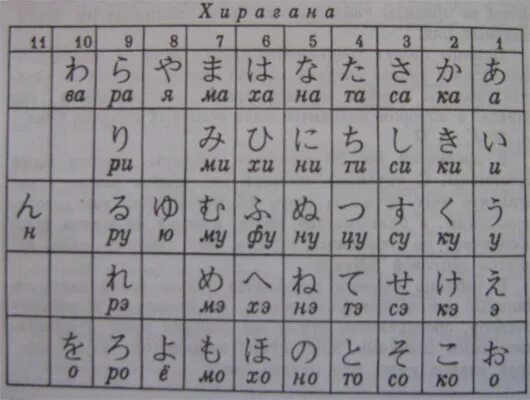 Хирагана
11 10 9 8 7 6 5 4 3 2 1
わ ら や ま は な た さ か あ
ва ра я ма ха на та са ка а
り み ひ に ち し き い
ри ми хи ни ти си ки и
ん る ゆ む ふ ぬ つ す く う
н ру ю му фу ну цу су ку у
れ め へ ね て せ け え
рэ мэ хэ нэ тэ сэ кэ э
を ろ よ も ほ の と そ こ お
о ро ё мо хо но то со ко о